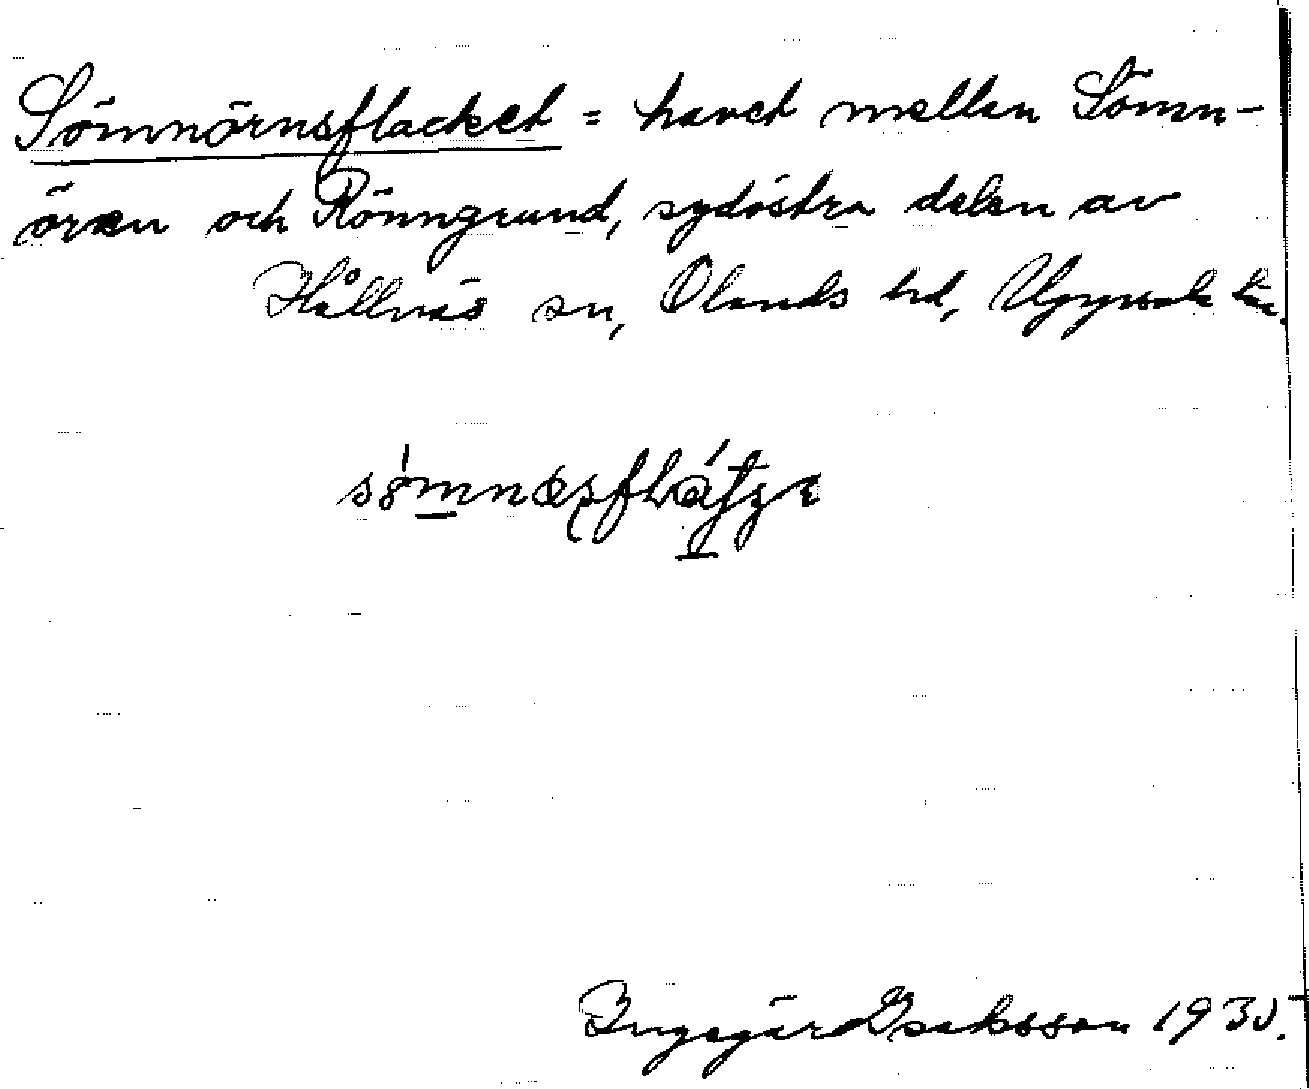 Sömnörnsflacket = havet mellan Sömn-
ören och Rönngrund, sydöstra delen av
Hållnäs sn, Olands hd, Uppsala län.
Ingegärd Isaksson 193